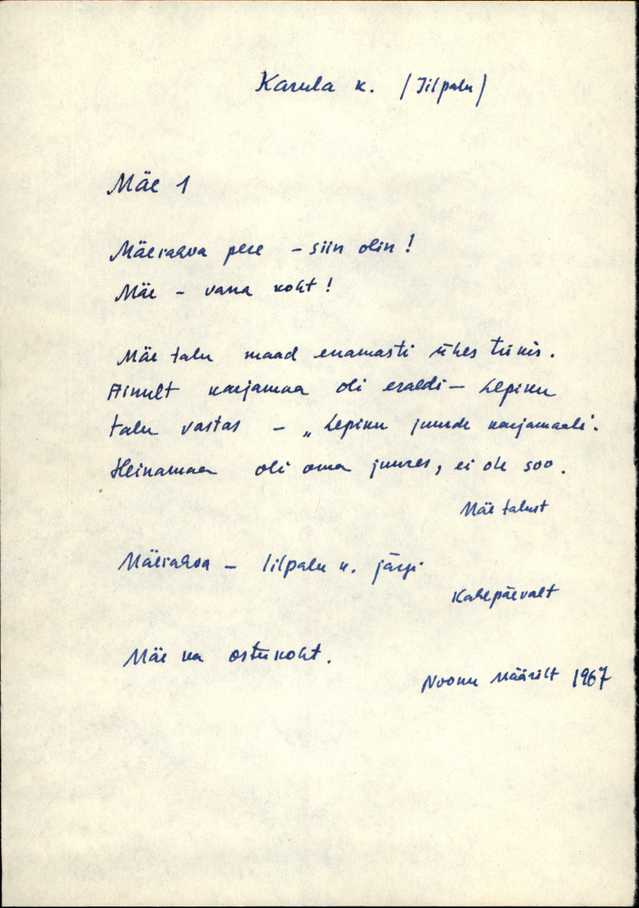 Karula k. /Iilpalu/
Mäe 1
Mäerahva pere – siin olin!
Mäe – vana koht!
Mäe talu maad enamasti ühes tükis.
Ainult karjamaa oli eraldi – Lepiku
talu vastas – „Lepiku juurde karjamaale".
Heinamaa oli oma juures, ei ole soo.
Mäe talust
Mäerahva – Iilpalu k. järgi
Kahepäevalt
Mäe ka ostukoht.
Nooru Määrilt 1967